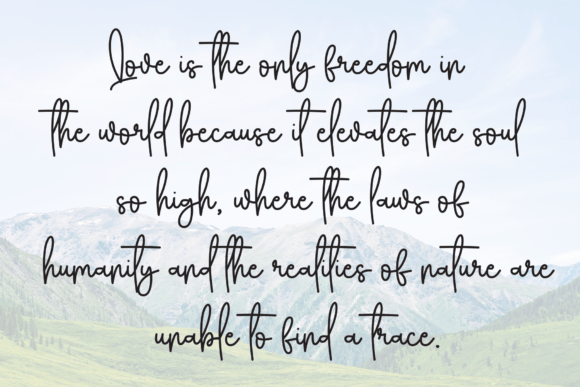 Love is the only freedom in
the world because it elevates the soul
so high, where the laws of
humanity and the realities of nature are
unable to find a trace.